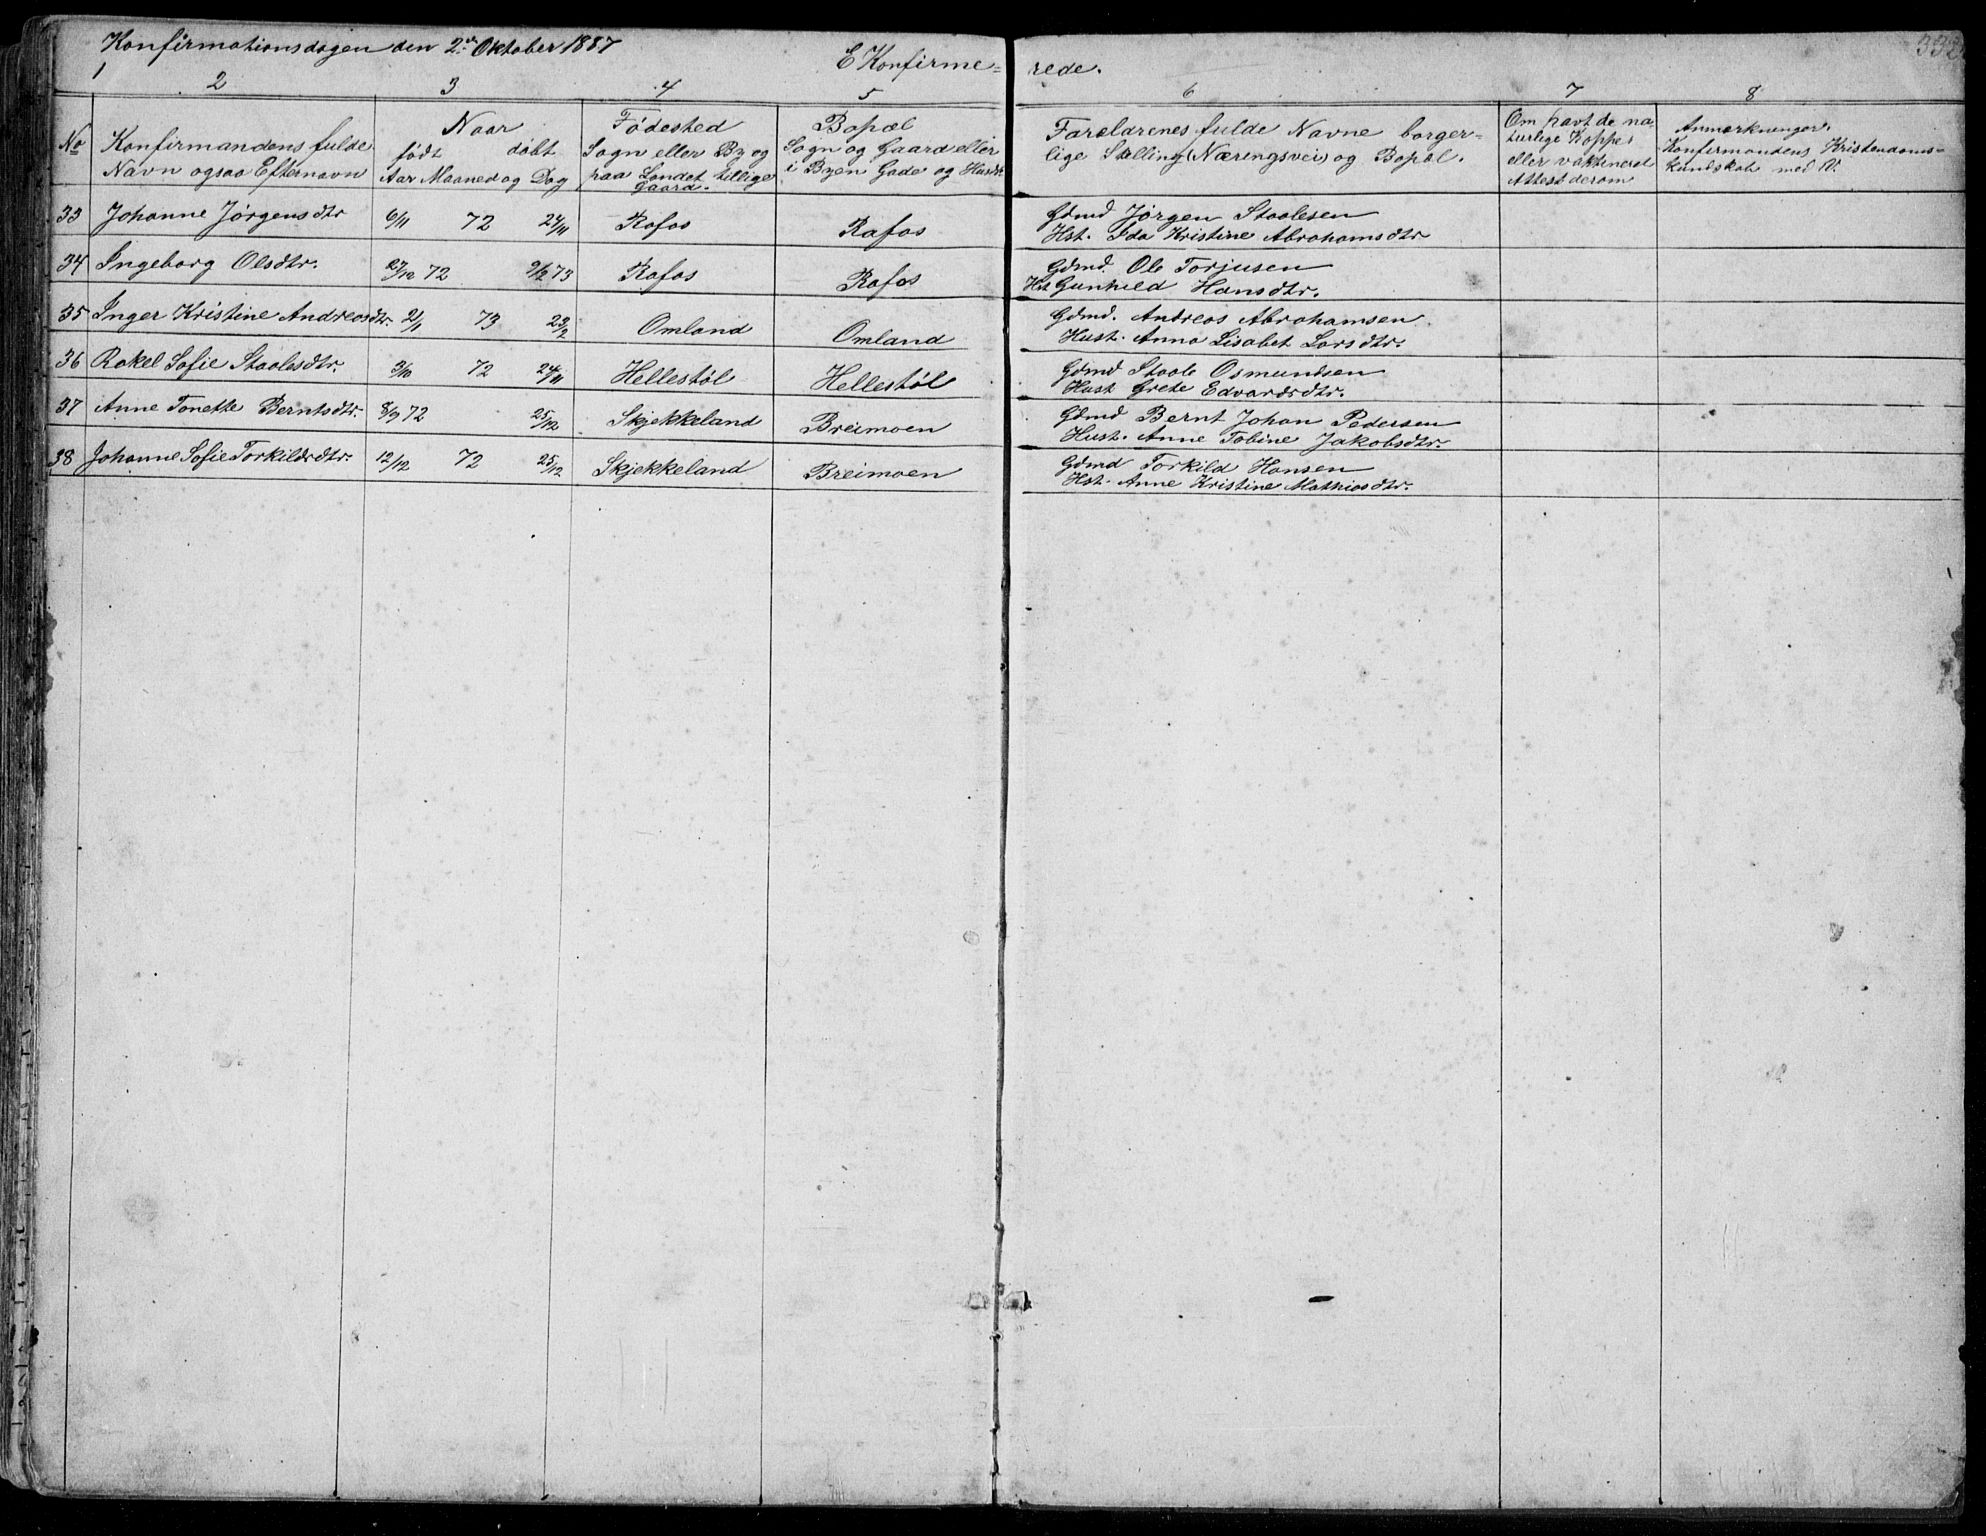 Konfirmationsdagen den 2den Oktober 1887
E Konfirme= rede.
332
1 2 3 4 5 6 7 8
No
Konfirmandens fulde
Navn ogsaa Efternavn
Naar
født døbt
Aar Maaned og Dag
Fødested
Sogn eller By og
paa Landet tillige
Gaard.
Bopæl
Sogn og Gaard eller
i Byen Gade og Husnr
Forældrenes fulde Navne borger=
lige Stilling (Næringsvei) og Bopæl.
Om havt de na=
turlige Kopper
eller vaktineret
Attest derom
Anmærkninger.
Konfirmandens Kristendoms=
kundskab med V.
33 Johanne Jørgensdtr 6/11 72 24/11 Rafos Rafos
Gdmd Jørgen Staalesen
Hst. Ida Kristine Abrahamsdtr
34 Ingeborg Olsdtr. 27/12 72 9/2 73 Rafos Rafos
Gdmd. Ole Torjusen
Hst Gunhild Hansdtr.
35 Inger Kristine Andreasdtr. 2/1 73 23/2 Omland Omland
Gdmd. Andreas Abrahamsen
Hust. Anna Lisabet Larsdtr.
36 Rakel Sofie Staalesdtr. 3/10 72 24/11 Hellestøl Hellestøl
Gdmd Staale Osmundsen
Hust Grete Edvardsdtr.
37 Anne Tonette Berntsdtr. 8/9 72 25/12 Skjekkeland Breimoen
Gdmd Bernt Johan Pedersen
Hust. Anne Tobine Jakobsdtr.
38 Johanne Sofie Torkildsdtr. 12/12 72 25/12 Skjekkeland Breimoen
Gdmd Torkild Hansen
Hst. Anne Kristine Mathiasdtr.